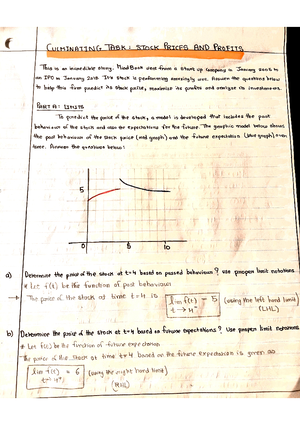 CULMINATING TASK: STOCK PRICES AND PROFITS
This is an incredible story. MindBook went from a start up company in January 2005 to
an IPO in January 2018. It's stock is performing amazingly well. Answer the questions below
to help this firm predict its stock price, maximize its profits and analyze its investments.
PART A: LIMITS
To predict the price of the stock, a model is developed that includes the past
behaviour of the stock and also the expectations for the future. The graphic model below shows
the past behaviour of the stock price (red graph) and the future expectation (blue graph) over
time. Answer the questions below:
5
0 5 10
a) Determine the price of the stock at t=4 based on passed behaviour? Use proper limit notations
* Let f(t) be the function of past behaviour
→ The price of the stock at time t=4 is lim f(t) = 5 (using the left hand limit)
t→4⁻ (LHL)
b) Determine the price of the stock at t=4 based on future expectations? Use proper limit notations
* Let f(t) be the function of future expectation
The price of the stock at time t=4 based on the future expectation is given as
lim f(t) = 6 (using the right hand limit)
t→4⁺ (RHL)